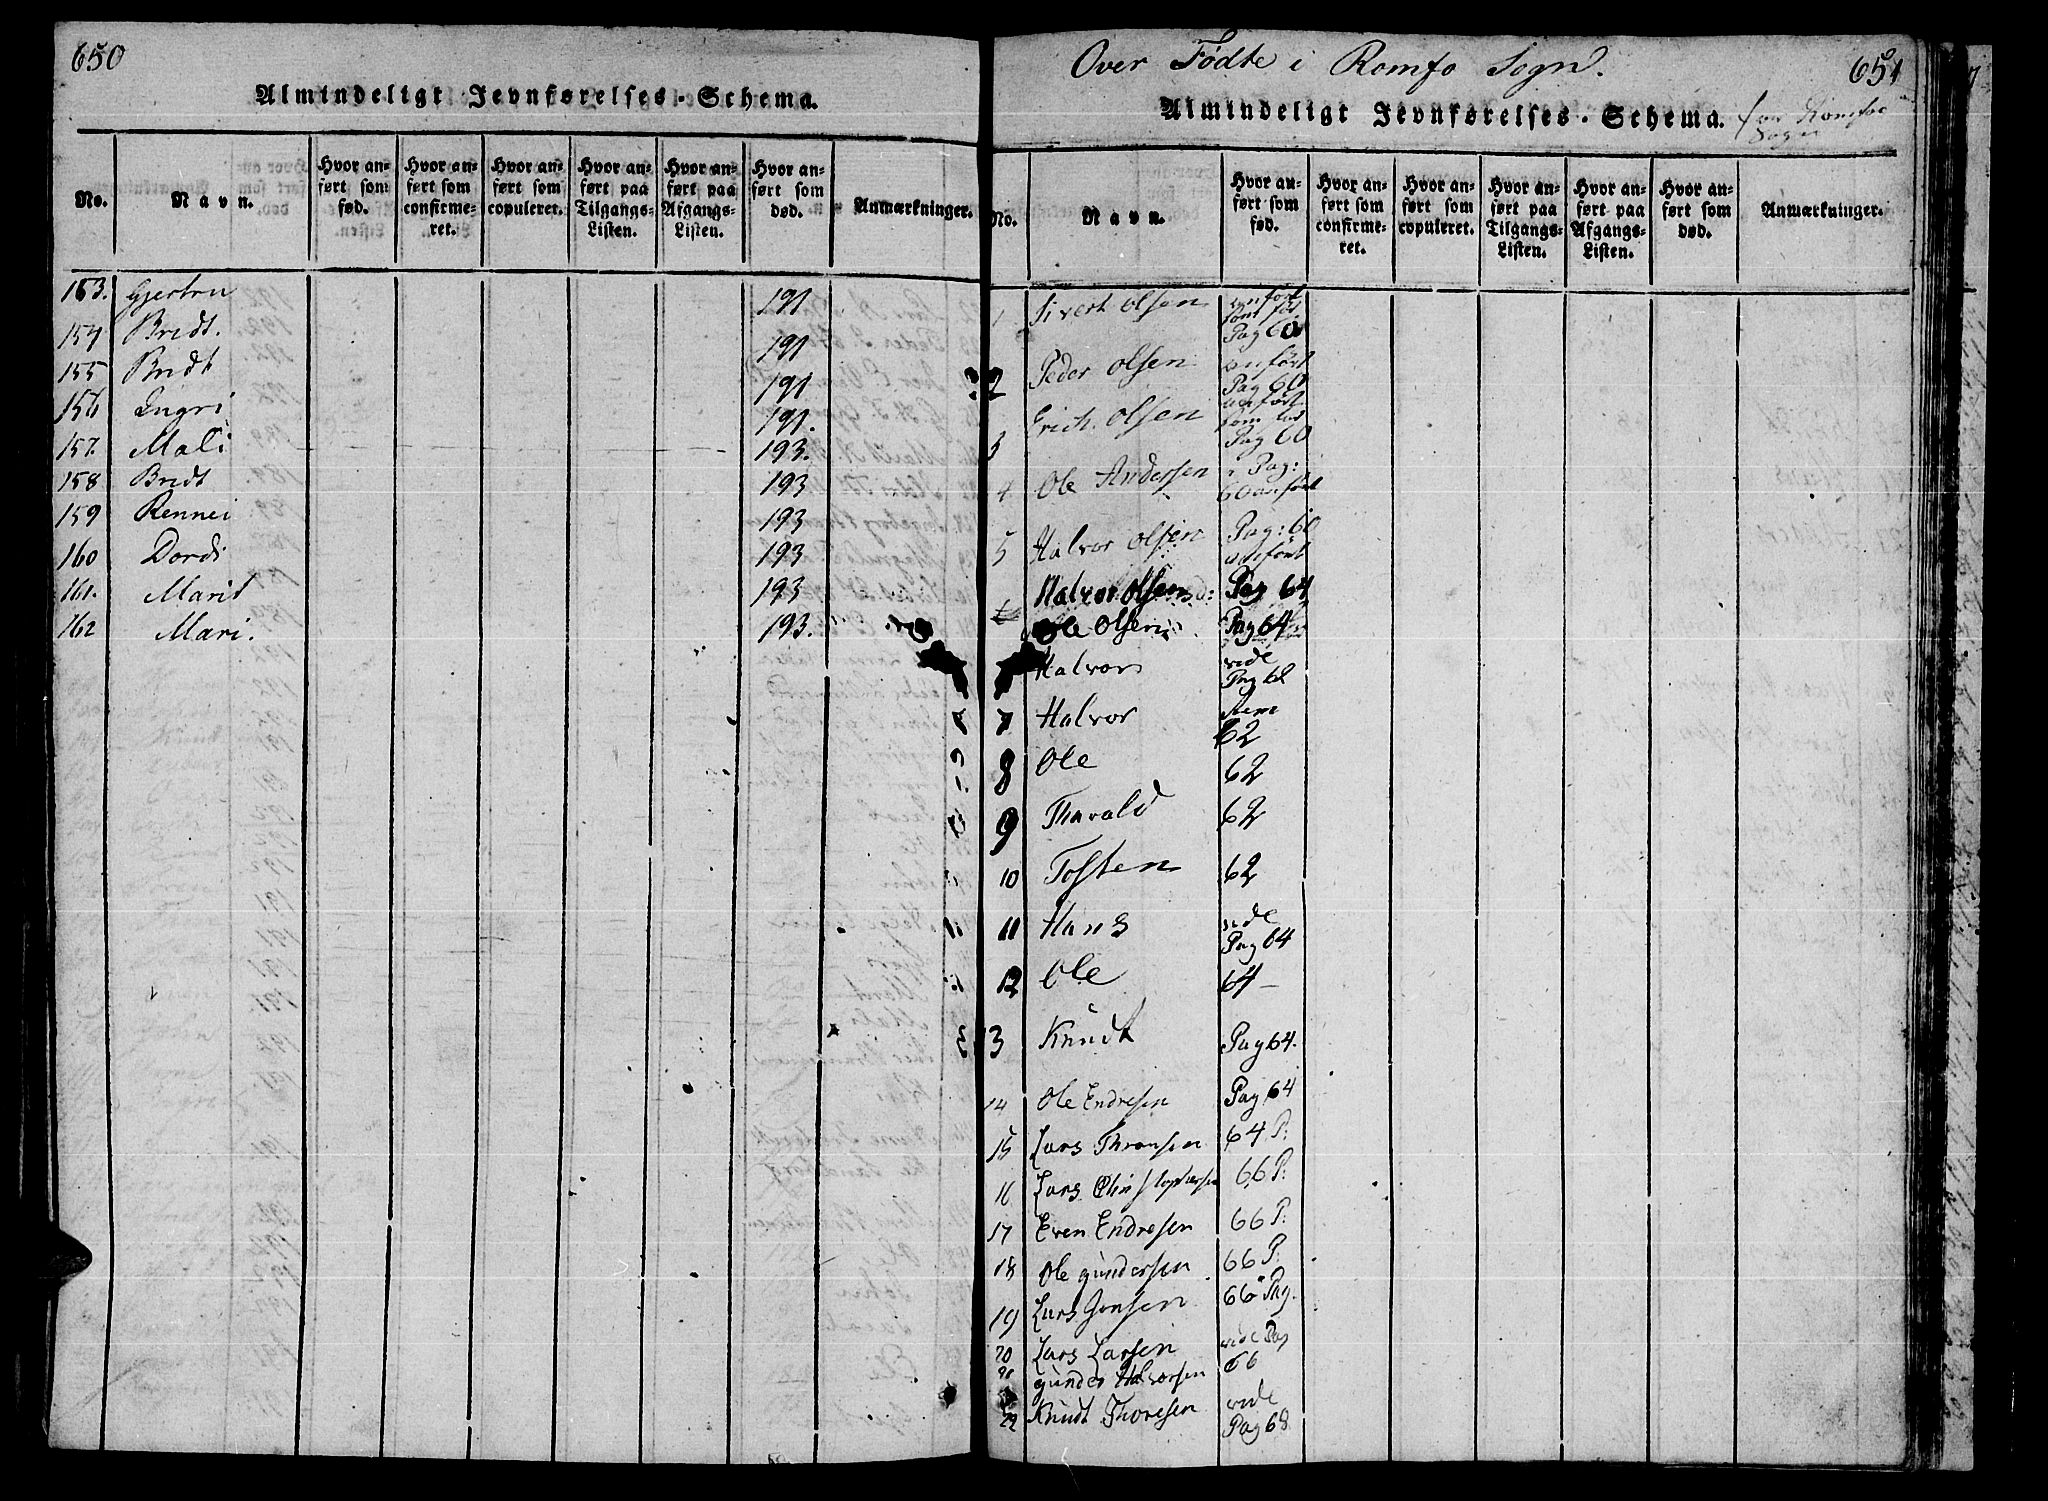 650
Almindeligt Jevnførelses-Schema.
No. Navn. Hvor anført som fød. Hvor anført som confirmeret. Hvor anført som copuleret. Hvor anført paa Tilgangs-Listen. Hvor anført paa Afgangs-Listen. Hvor anført som død. Anmærkninger.
153. Gjertru 191
154 Bredt. 191
155 Bredt 191
156 Ingri 191.
157. Mali 193.
158 Bredt 193
159 Rennei 193
160 Dordi 193
161. Marit 193
162 Mari. 193.
Over Fødte i Romfo Sogn.
651
Almindeligt Jevnførelses-Schema. for Romfoe Sogn
No. Navn. Hvor anført som fød. Hvor anført som confirmeret. Hvor anført som copuleret. Hvor anført paa Tilgangs-Listen. Hvor anført paa Afgangs-Listen. Hvor anført som død. Anmærkninger.
1 Sivert Olsen anført som fød Pag 60
2 Peder Olsen anført Pag 60
3 Erich Olsen anført som Pag 60
4 Ole Andersen i Pag: 60 anført
5 Halvor Olsen Pag: 60 anført
Halvor Olsen Pag 64
Ole Olsen Pag 64
Halvor vide Pag
7 Halvor 62
8 Ole 62
9 Tharald 62
10 Tosten 62
11 Hans vide Pag 64
12 Ole 64
13 Knudt Pag 64.
14 Ole Endresen Pag 64
15 Lars Thronsen 64 P:
16 Lars Christophersen 66 P:
17 Even Endresen 66 P:
18 Ole Gundersen 66 P:
19 Lars Jonsen 66 Pag.
20 Lars Larsen vide Pag 66
Gunder Halvorsen
22 Knudt Thoresen vide Pag 68